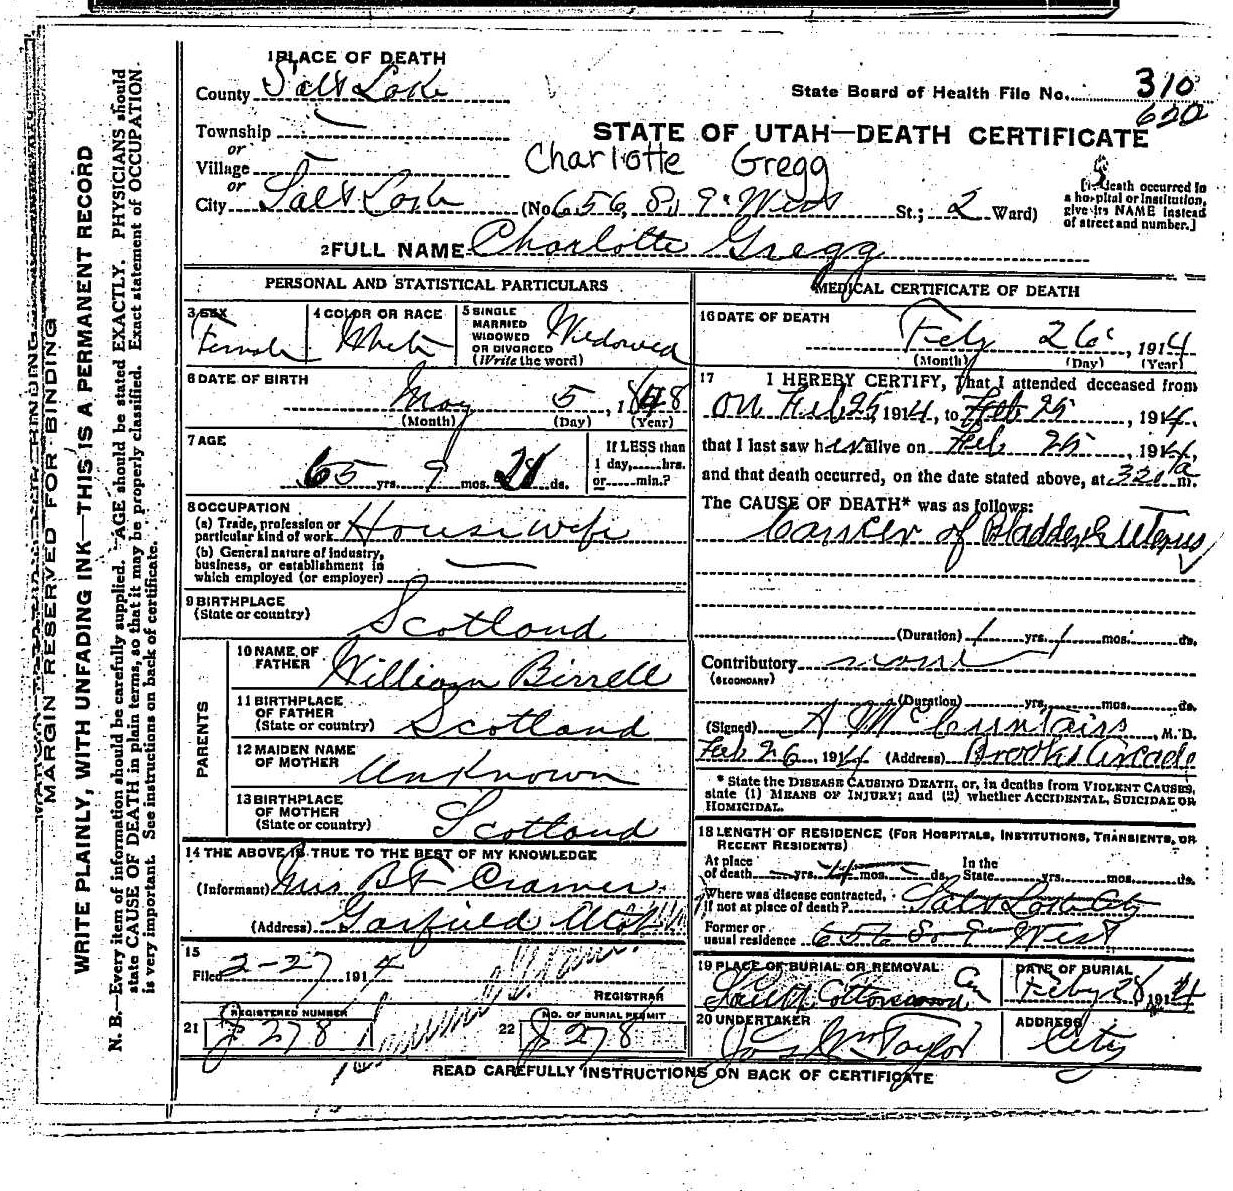 1 PLACE OF DEATH
County Salt Lake
State Board of Health File No. 310
620
Township
or
Village
or
City Salt Lake
STATE OF UTAH—DEATH CERTIFICATE
Charlotte Gregg
(No. 656, So 9 West St.; 2 Ward)
[If death occurred in
a hospital or institution,
give its NAME instead
of street and number.]
2 FULL NAME Charlotte Gregg
PERSONAL AND STATISTICAL PARTICULARS
3 SEX
Female
4 COLOR OR RACE
White
5 SINGLE
MARRIED
WIDOWED
OR DIVORCED
(Write the word)
Widowed
6 DATE OF BIRTH
May 5, 1848
(Month) (Day) (Year)
7 AGE
65 yrs. 9 mos. 21 ds.
If LESS than
1 day, hrs.
or min.?
8 OCCUPATION
(a) Trade, profession or
particular kind of work Housewife
(b) General nature of industry,
business, or establishment in
which employed (or employer)
9 BIRTHPLACE
(State or country) Scotland
PARENTS
10 NAME OF
FATHER William Birrell
11 BIRTHPLACE
OF FATHER
(State or country) Scotland
12 MAIDEN NAME
OF MOTHER Unknown
13 BIRTHPLACE
OF MOTHER
(State or country) Scotland
14 THE ABOVE IS TRUE TO THE BEST OF MY KNOWLEDGE
(Informant) Mrs B F Cramer
(Address) Garfield Utah
15
Filed 2-27 1914
REGISTRAR
REGISTERED NUMBER
21 J 278
NO. OF BURIAL PERMIT
22 J 278
MEDICAL CERTIFICATE OF DEATH
16 DATE OF DEATH
Feby 26, 1914
(Month) (Day) (Year)
17 I HEREBY CERTIFY, That I attended deceased from
on Feb 25, 1914, to Feb 25, 1914,
that I last saw her alive on Feb 25, 1914,
and that death occurred, on the date stated above, at 320 a m.
The CAUSE OF DEATH* was as follows:
Cancer of Bladder & Uterus
(Duration) 1 yrs. 1 mos. ds.
Contributory none
(SECONDARY)
(Duration) yrs. mos. ds.
(Signed) M.D.
Feb 26, 1914 (Address) Brooks Arcade
* State the DISEASE CAUSING DEATH, or, in deaths from VIOLENT CAUSES,
state (1) MEANS OF INJURY; and (2) whether ACCIDENTAL, SUICIDAL OR
HOMICIDAL.
18 LENGTH OF RESIDENCE (FOR HOSPITALS, INSTITUTIONS, TRANSIENTS, OR
RECENT RESIDENTS)
At place
of death yrs. 4 mos. ds.
In the
State yrs. mos. ds.
Where was disease contracted,
if not at place of death? Salt Lake City
Former or
usual residence 656 So 9 West
19 PLACE OF BURIAL OR REMOVAL
South Cottonwood Cem
DATE OF BURIAL
Feby 28, 1914
20 UNDERTAKER
Jos Wm Taylor
ADDRESS
City
READ CAREFULLY INSTRUCTIONS ON BACK OF CERTIFICATE
MARGIN RESERVED FOR BINDING
WRITE PLAINLY, WITH UNFADING INK—THIS IS A PERMANENT RECORD
N. B.—Every item of information should be carefully supplied. AGE should be stated EXACTLY. PHYSICIANS should
state CAUSE OF DEATH in plain terms, so that it may be properly classified. Exact statement of OCCUPATION
is very important. See instructions on back of certificate.